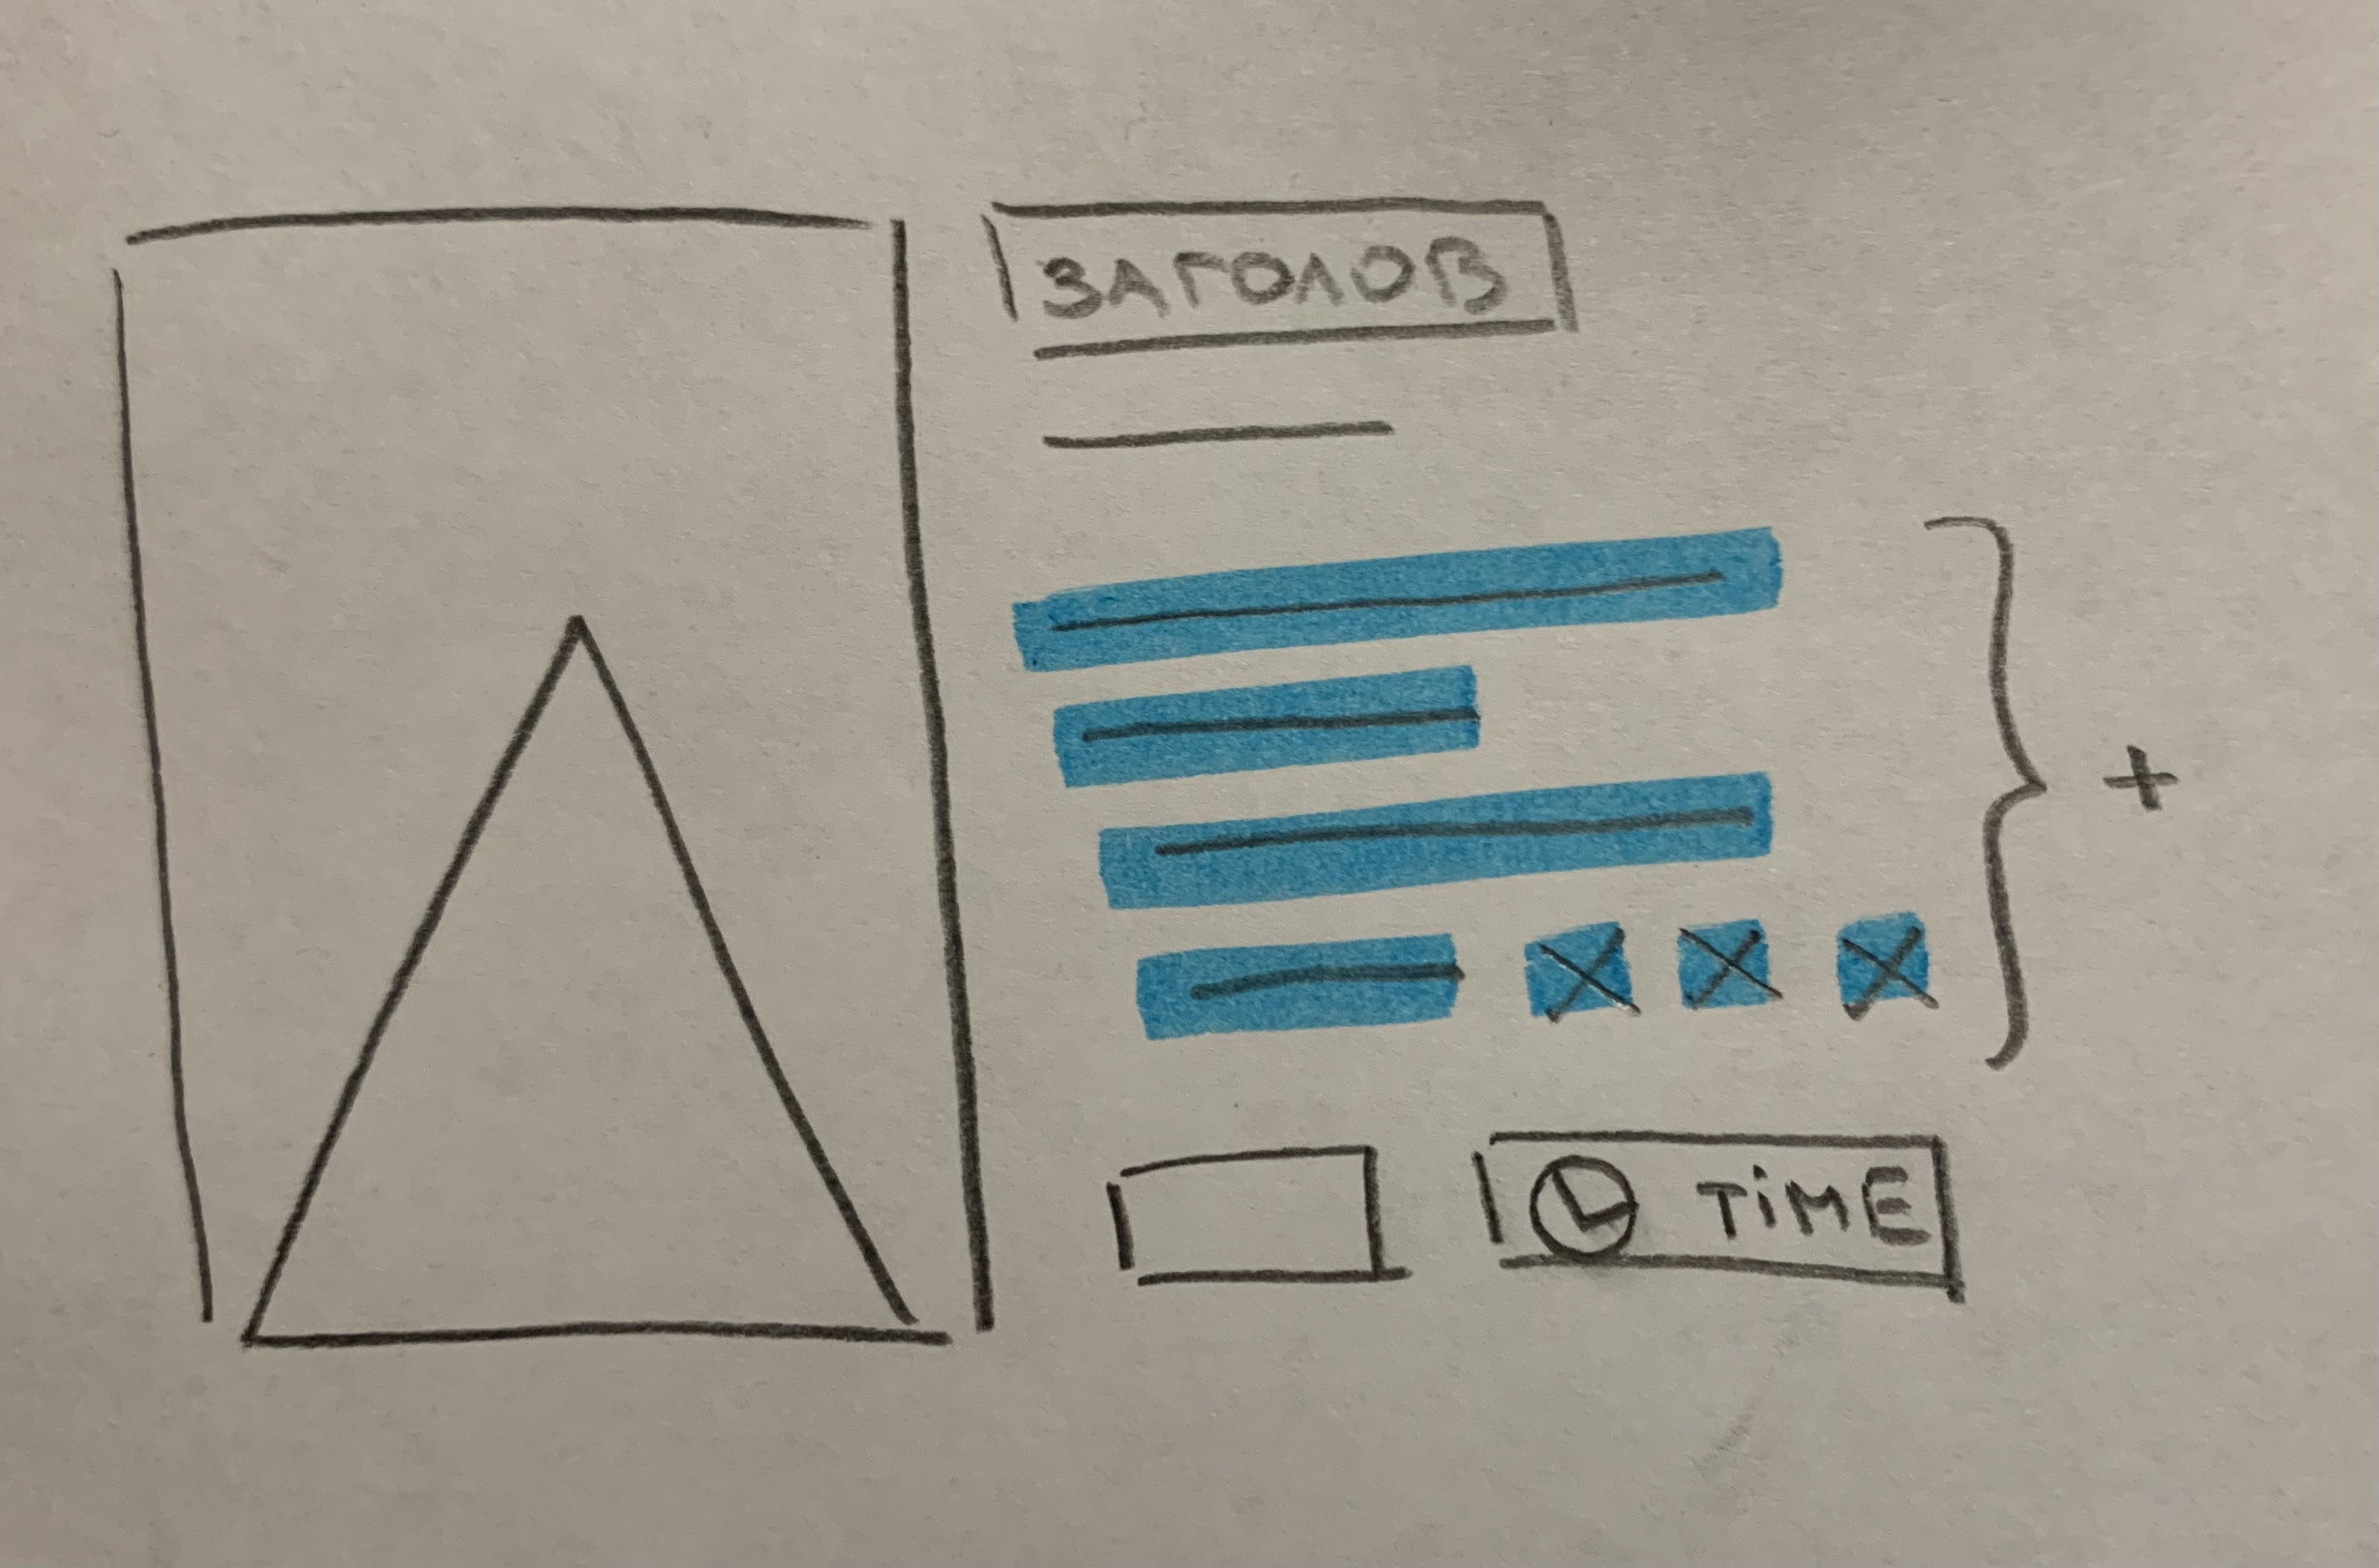 ЗАГОЛОВ
+
TiME